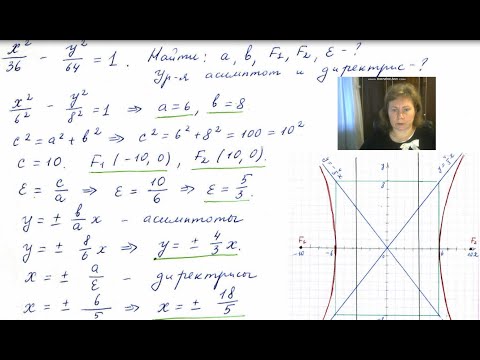 x²/36 - y²/64 = 1. Найти: a, b, F₁, F₂, ε - ?
Ур-я асимптот и директрис - ?
x²/6² - y²/8² = 1 ⇒ a = 6, b = 8
c² = a² + b² ⇒ c² = 6² + 8² = 100 = 10²
c = 10. F₁(-10, 0), F₂(10, 0).
ε = c/a ⇒ ε = 10/6 ⇒ ε = 5/3.
y = ± b/a x - асимптоты
y = ± 8/6 x ⇒ y = ± 4/3 x.
x = ± a/ε - директрисы
x = ± 6/5 ⇒ x = ± 18/5
F₁
F₂
-10
-6
0
6
10
x
8